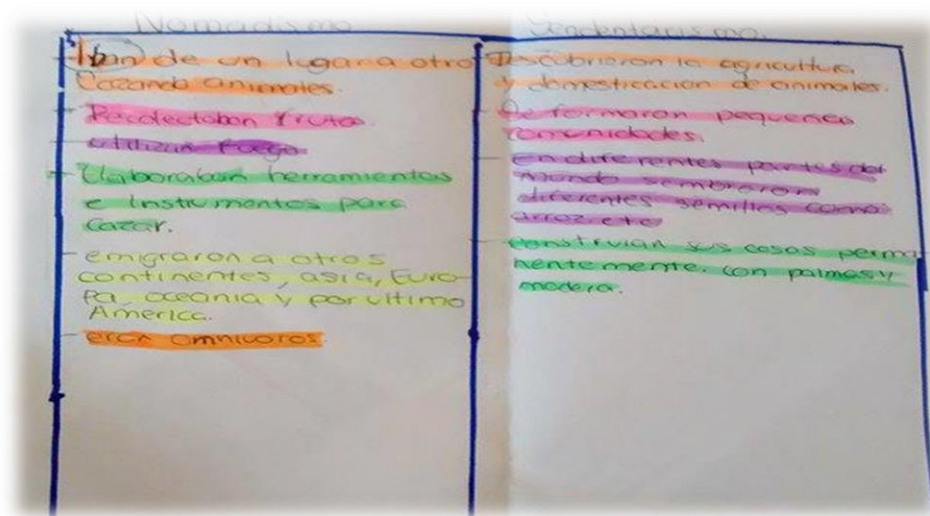 Nomadismo
- Iban de un lugar a otro
Cazando animales.
- Recolectaban fruta.
- utilizan fuego
- Elaboraban herramientas
e instrumentos para
cazar.
- emigraron a otros
continentes, asia, Euro-
pa, oceania y por ultimo
America.
- eran omnivoros.
Sendentarismo.
- Descubrieron la agricultura
y domesticacion de animales.
- Se formaron pequeñas
comunidades.
- en diferentes partes del
mundo sembraron
diferentes semillas como:
arroz etc
- construian sus casas perma-
nentemente. con palmas y
madera.